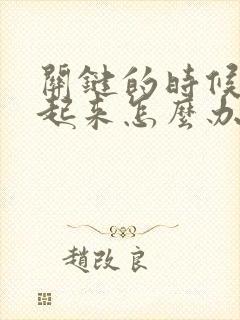 關鍵的時候
起來怎麼办
趙改良